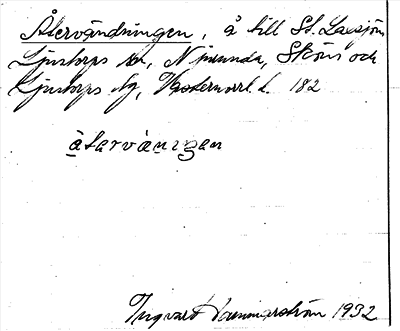 Återvändningen, å till St. Laxsjön
Ljustorps sn, Njurunda, Sköns och
Ljustorps tg, Västernorrl. l. 182
åtərväningən
Ingvald Hammarström 1932